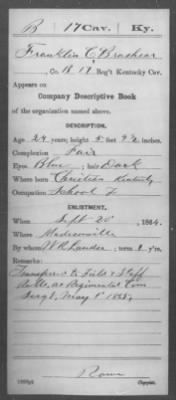 B 17 Cav. Ky.
Franklin C Brashear
, Co. B, 17 Reg't Kentucky Cav.
Appears on
Company Descriptive Book
of the organization named above.
DESCRIPTION.
Age 24 years; height 5 feet 9½ inches.
Complexion Fair
Eyes Blue; hair Dark
Where born Christian Kentucky
Occupation School T
ENLISTMENT.
When Sept 20, 1864.
Where Madisonville
By whom W R Lander; term 1 y'rs.
Remarks:
Transferred to Field & Staff
as Regimental Com
Sergt, May 1st 1865
Copyist.